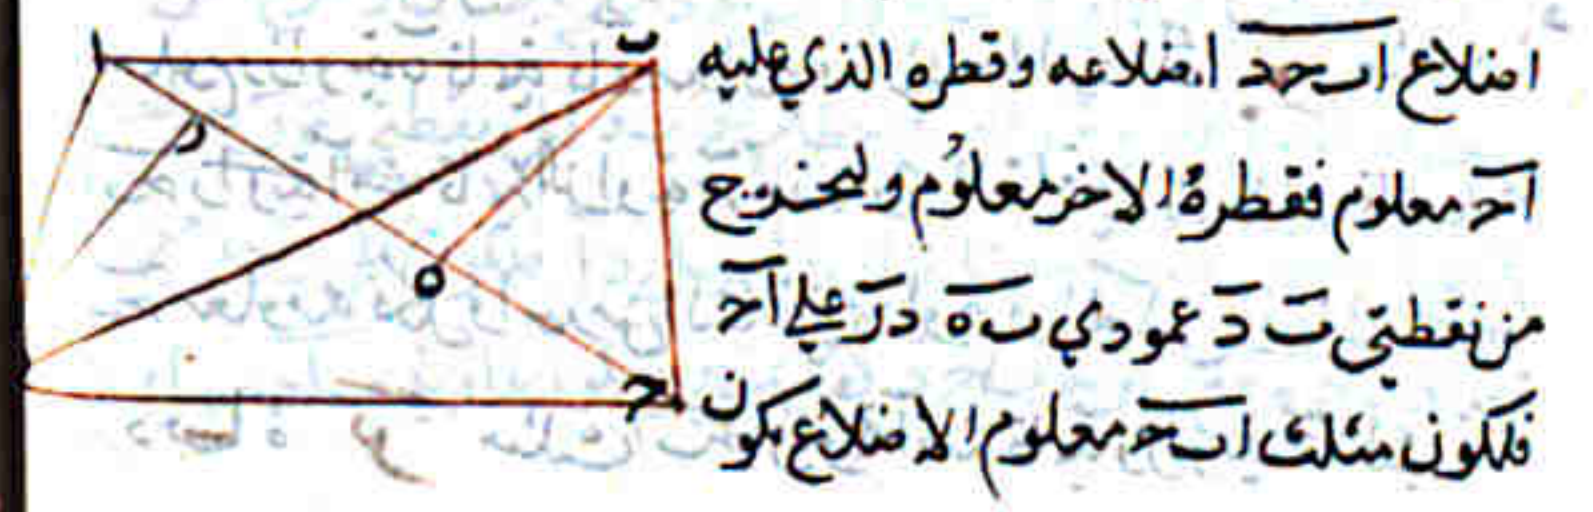 اضلاع ابحد اضلاعه وقطره الذي عليه
اح معلوم فقطره الاخر معلوم ولنخرج
من نقطتي ب د عمودي ب ه د ر علي اح
فلكون مثلث ابح معلوم الاضلاع يكون
ا
ب
ر
ه
ح